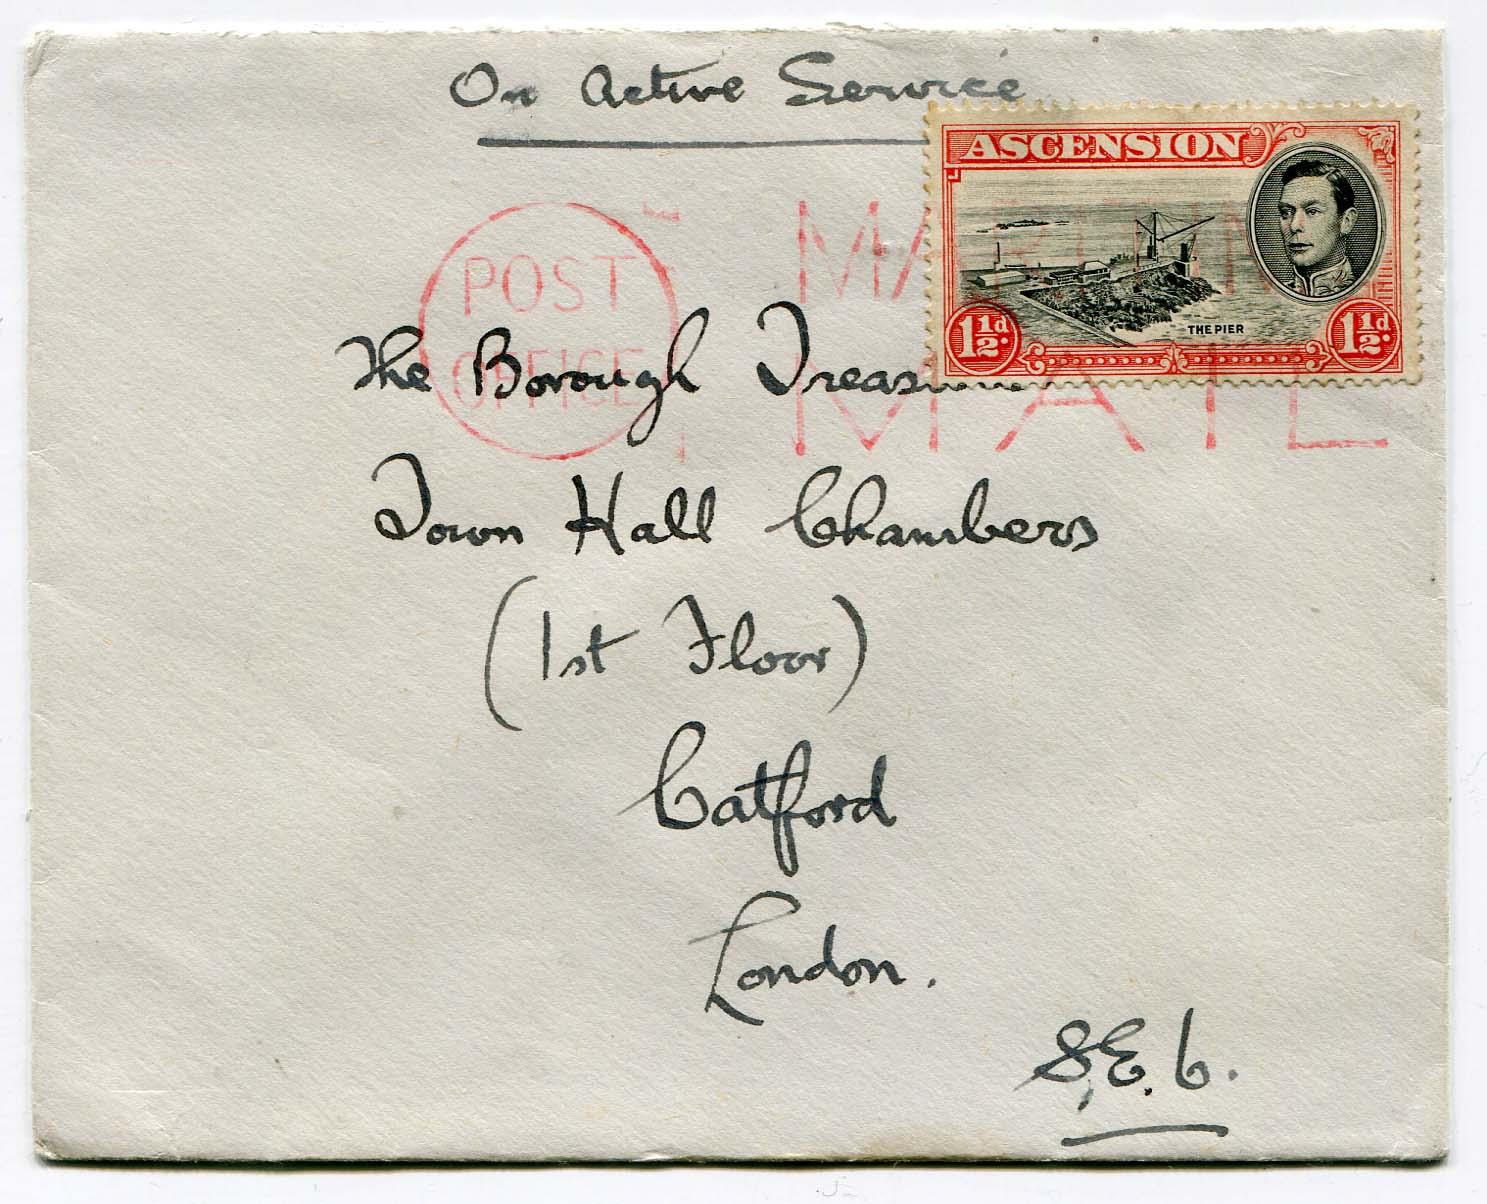 On Active Service
ASCENSION
THE PIER
1½d.
1½d.
POST
OFFICE
MARITIME
MAIL
The Borough Treasurer
Town Hall Chambers
(1st Floor)
Catford
London.
S.E.6.